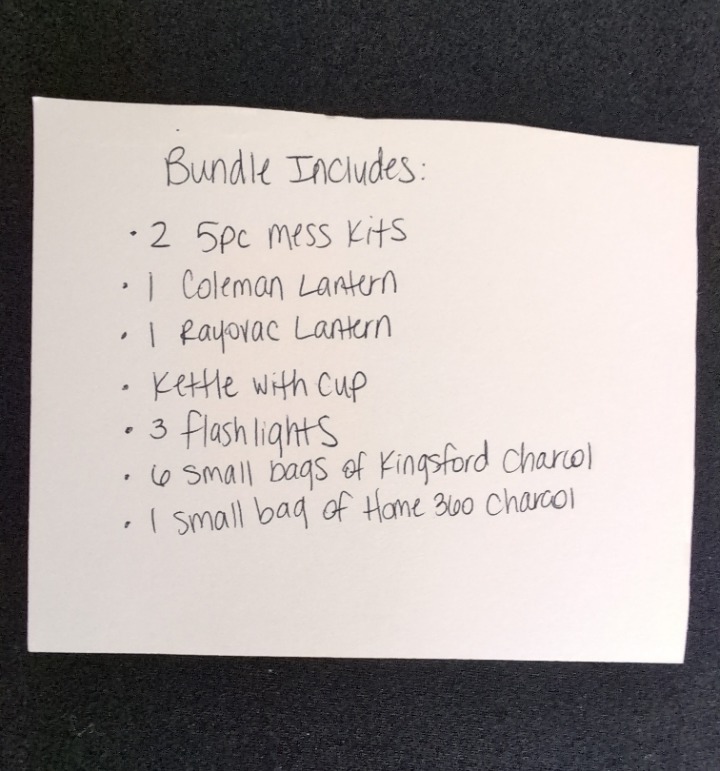 Bundle Includes:
· 2 5pc mess kits
· 1 Coleman Lantern
· 1 Rayovac Lantern
· Kettle with cup
· 3 flashlights
· 6 small bags of Kingsford Charcol
· 1 small bag of Home 360 Charcol